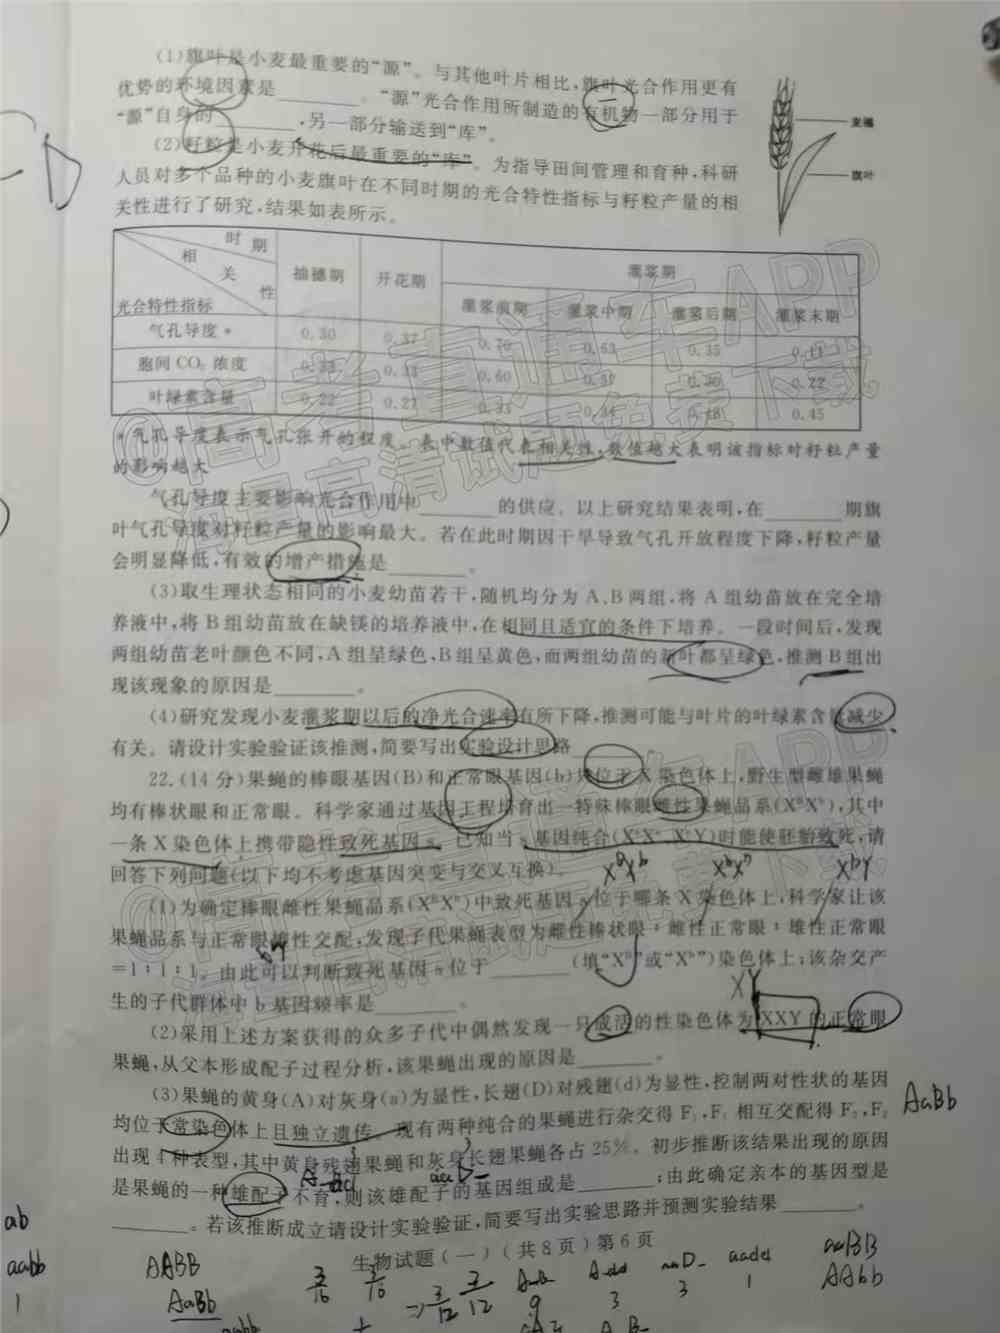 (1)旗叶是小麦最重要的“源”。与其他叶片相比,旗叶光合作用更有
优势的环境因素是________。“源”光合作用所制造的有机物一部分用于
“源”自身的________,另一部分输送到“库”。
麦穗
旗叶
(2)籽粒是小麦开花后最重要的“库”。为指导田间管理和育种,科研
人员对多个品种的小麦旗叶在不同时期的光合特性指标与籽粒产量的相
关性进行了研究,结果如表所示。
时期
相关性
光合特性指标
抽穗期 开花期 灌浆期
灌浆前期 灌浆中期 灌浆后期 灌浆末期
气孔导度* 0.30 0.37 0.70 0.63 0.35 0.11
胞间CO₂浓度 0.33 0.33 0.60 0.57 0.30 0.22
叶绿素含量 0.22 0.27 0.33 0.34 0.48 0.45
*气孔导度表示气孔张开的程度。表中数值代表相关性,数值越大表明该指标对籽粒产量
的影响越大
气孔导度主要影响光合作用中________的供应。以上研究结果表明,在________期旗
叶气孔导度对籽粒产量的影响最大。若在此时期因干旱导致气孔开放程度下降,籽粒产量
会明显降低,有效的增产措施是________。
(3)取生理状态相同的小麦幼苗若干,随机均分为A、B两组,将A组幼苗放在完全培
养液中,将B组幼苗放在缺镁的培养液中,在相同且适宜的条件下培养。一段时间后,发现
两组幼苗老叶颜色不同,A组呈绿色,B组呈黄色,而两组幼苗的新叶都呈绿色,推测B组出
现该现象的原因是________。
(4)研究发现小麦灌浆期以后的净光合速率有所下降,推测可能与叶片的叶绿素含量减少
有关。请设计实验验证该推测,简要写出实验设计思路
22.(14分)果蝇的棒眼基因(B)和正常眼基因(b)只位于X染色体上,野生型雌雄果蝇
均有棒状眼和正常眼。科学家通过基因工程培育出一特殊棒眼雌性果蝇品系(XᴮXᵇ),其中
一条X染色体上携带隐性致死基因n。已知当n基因纯合(XⁿXⁿ、XⁿY)时能使胚胎致死,请
回答下列问题(以下均不考虑基因突变与交叉互换)。
(1)为确定棒眼雌性果蝇品系(XᴮXᵇ)中致死基因n位于哪条X染色体上,科学家让该
果蝇品系与正常眼雄性交配,发现子代果蝇表型为雌性棒状眼∶雌性正常眼∶雄性正常眼
=1∶1∶1。由此可以判断致死基因n位于________(填“Xᴮ”或“Xᵇ”)染色体上;该杂交产
生的子代群体中b基因频率是________。
(2)采用上述方案获得的众多子代中偶然发现一只成活的性染色体为XXY的正常眼
果蝇,从父本形成配子过程分析,该果蝇出现的原因是________。
(3)果蝇的黄身(A)对灰身(a)为显性,长翅(D)对残翅(d)为显性,控制两对性状的基因
均位于常染色体上且独立遗传。现有两种纯合的果蝇进行杂交得F₁,F₁相互交配得F₂,F₂
出现4种表型,其中黄身残翅果蝇和灰身长翅果蝇各占25%。初步推断该结果出现的原因
是果蝇的一种雄配子不育,则该雄配子的基因组成是________;由此确定亲本的基因型是
________。若该推断成立请设计实验验证,简要写出实验思路并预测实验结果________。
生物试题(一)(共8页)第6页
AaBb
ab
aabb
1
AABB
AaBb
aabb
aadd
1
aaBB
AAbb